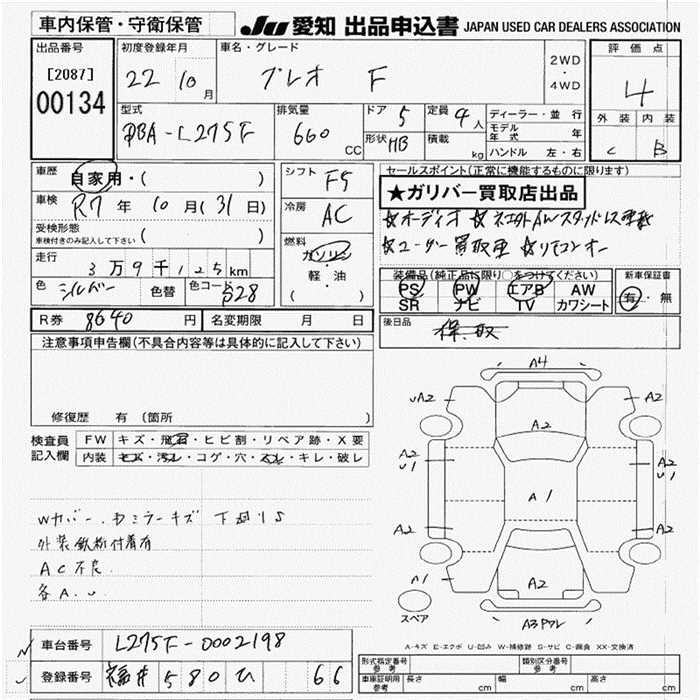 車内保管・守衛保管 JU 愛知 出品申込書 JAPAN USED CAR DEALERS ASSOCIATION
出品番号
[2087]
00134
初度登録年月
22 10月
車名・グレード
プレオ F
2WD
・
4WD
評価点
4
外装 内装
C B
型式
DBA-L275F
排気量
660 CC
ドア 5
形状 HB
定員 4人
積載 kg
ディーラー・並行
モデル年式 年
ハンドル 左・右
車歴
自家用・( )
車検
R7年 10月(31日)
受検形態
車検付きのみ記入して下さい ( )
走行
3万9千125km
色 シルバー 色替 色コード S28
シフト F5
冷房 AC
燃料
ガソリン
軽・油
( )
セールスポイント(正常に機能するものに限ります)
★ガリバー買取店出品
☆オーディオ ☆
☆ユーザー買取車 ☆リモコン
装備品(純正品に限り○をつけてください)
PS PW エアB AW
SR ナビ TV カワシート
新車保証書
有・無
R券 8640円 名変期限 月 日
後日品 保、取
注意事項申告欄(不具合内容等は具体的に記入して下さい)
修復歴 有 (箇所 )
検査員記入欄
FW キズ・飛石・ヒビ割・リペア跡・X要
内装 キズ・汚レ・コゲ・穴・スレ・キレ・破レ
Wカバー、ドミラーキズ 下廻りS
外装鉄粉付着有
AC不良
各A.U
A4
UA2
A2
A2
A2
U1
A1
A2
U1
A2
A2
A1
A2
スペア
A3ワレ
A-キズ E-エクボ U-凹み W-補修跡 S-サビ C-腐食 XX-交換済
車台番号 L275F-0002198
登録番号 福井 580 ひ 66
型式指定番号 参考
類別区分番号 参考
車庫証明用 参考 長さ cm 幅 cm 高さ cm